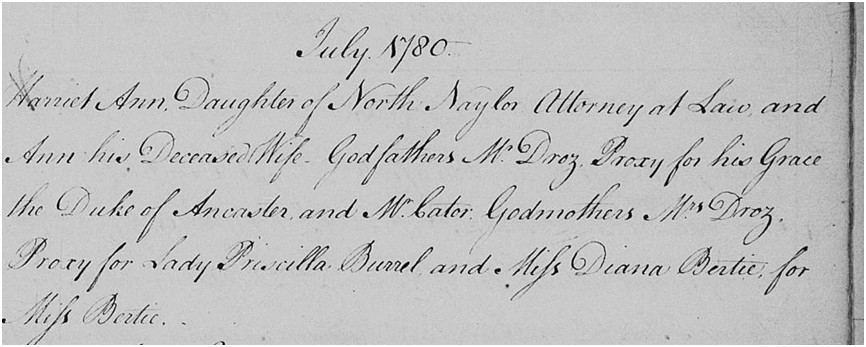 July. 1780.
Harriet Ann, Daughter of North Naylor Attorney at Law, and
Ann his Deceased Wife - Godfathers Mr. Droz, Proxy for his Grace
the Duke of Ancaster, and Mr. Cator. Godmothers Mrs Droz,
Proxy for Lady Priscilla Burrel, and Miſs Diana Bertie, for
Miſs Bertie.